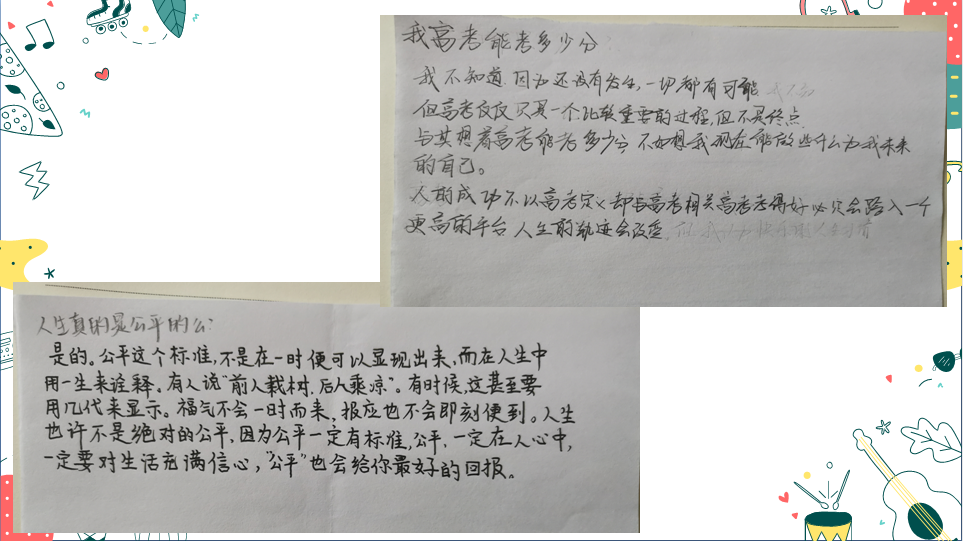 我高考能考多少分
我不知道因为还没有发生,一切都有可能
但高考仅仅只是一个比较重要的过程,但不是终点
与其想着高考能考多少分不如想我现在能做些什么为我未来
的自己。
人的成功不以高考定义却与高考相关高考考得好必定会踏入一个
更高的平台人生的轨迹会改变
人生真的是公平的么:
是的。公平这个标准,不是在一时便可以显现出来,而在人生中
用一生来诠释。有人说“前人栽树,后人乘凉”。有时候,这甚至要
用几代来显示。福气不会一时而来,报应也不会即刻便到。人生
也许不是绝对的公平,因为公平一定有标准,公平,一定在人心中,
一定要对生活充满信心,“公平”也会给你最好的回报。